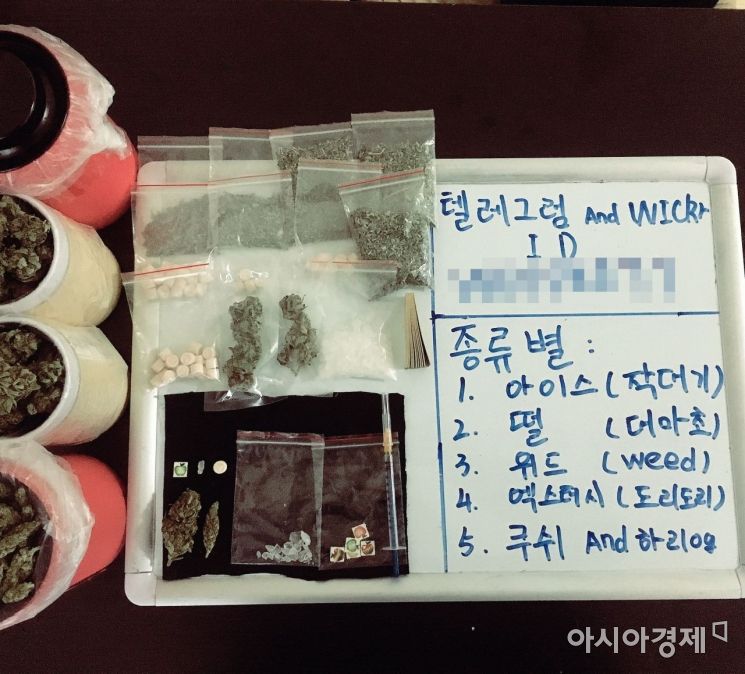 텔레그렘 And WICKr
I D
종류별 :
1. 아이스 (작대기)
2. 떨 (더마초)
3. 위드 (weed)
4. 엑스터시 (도리도리)
5. 쿠쉬 And 하리
아시아경제